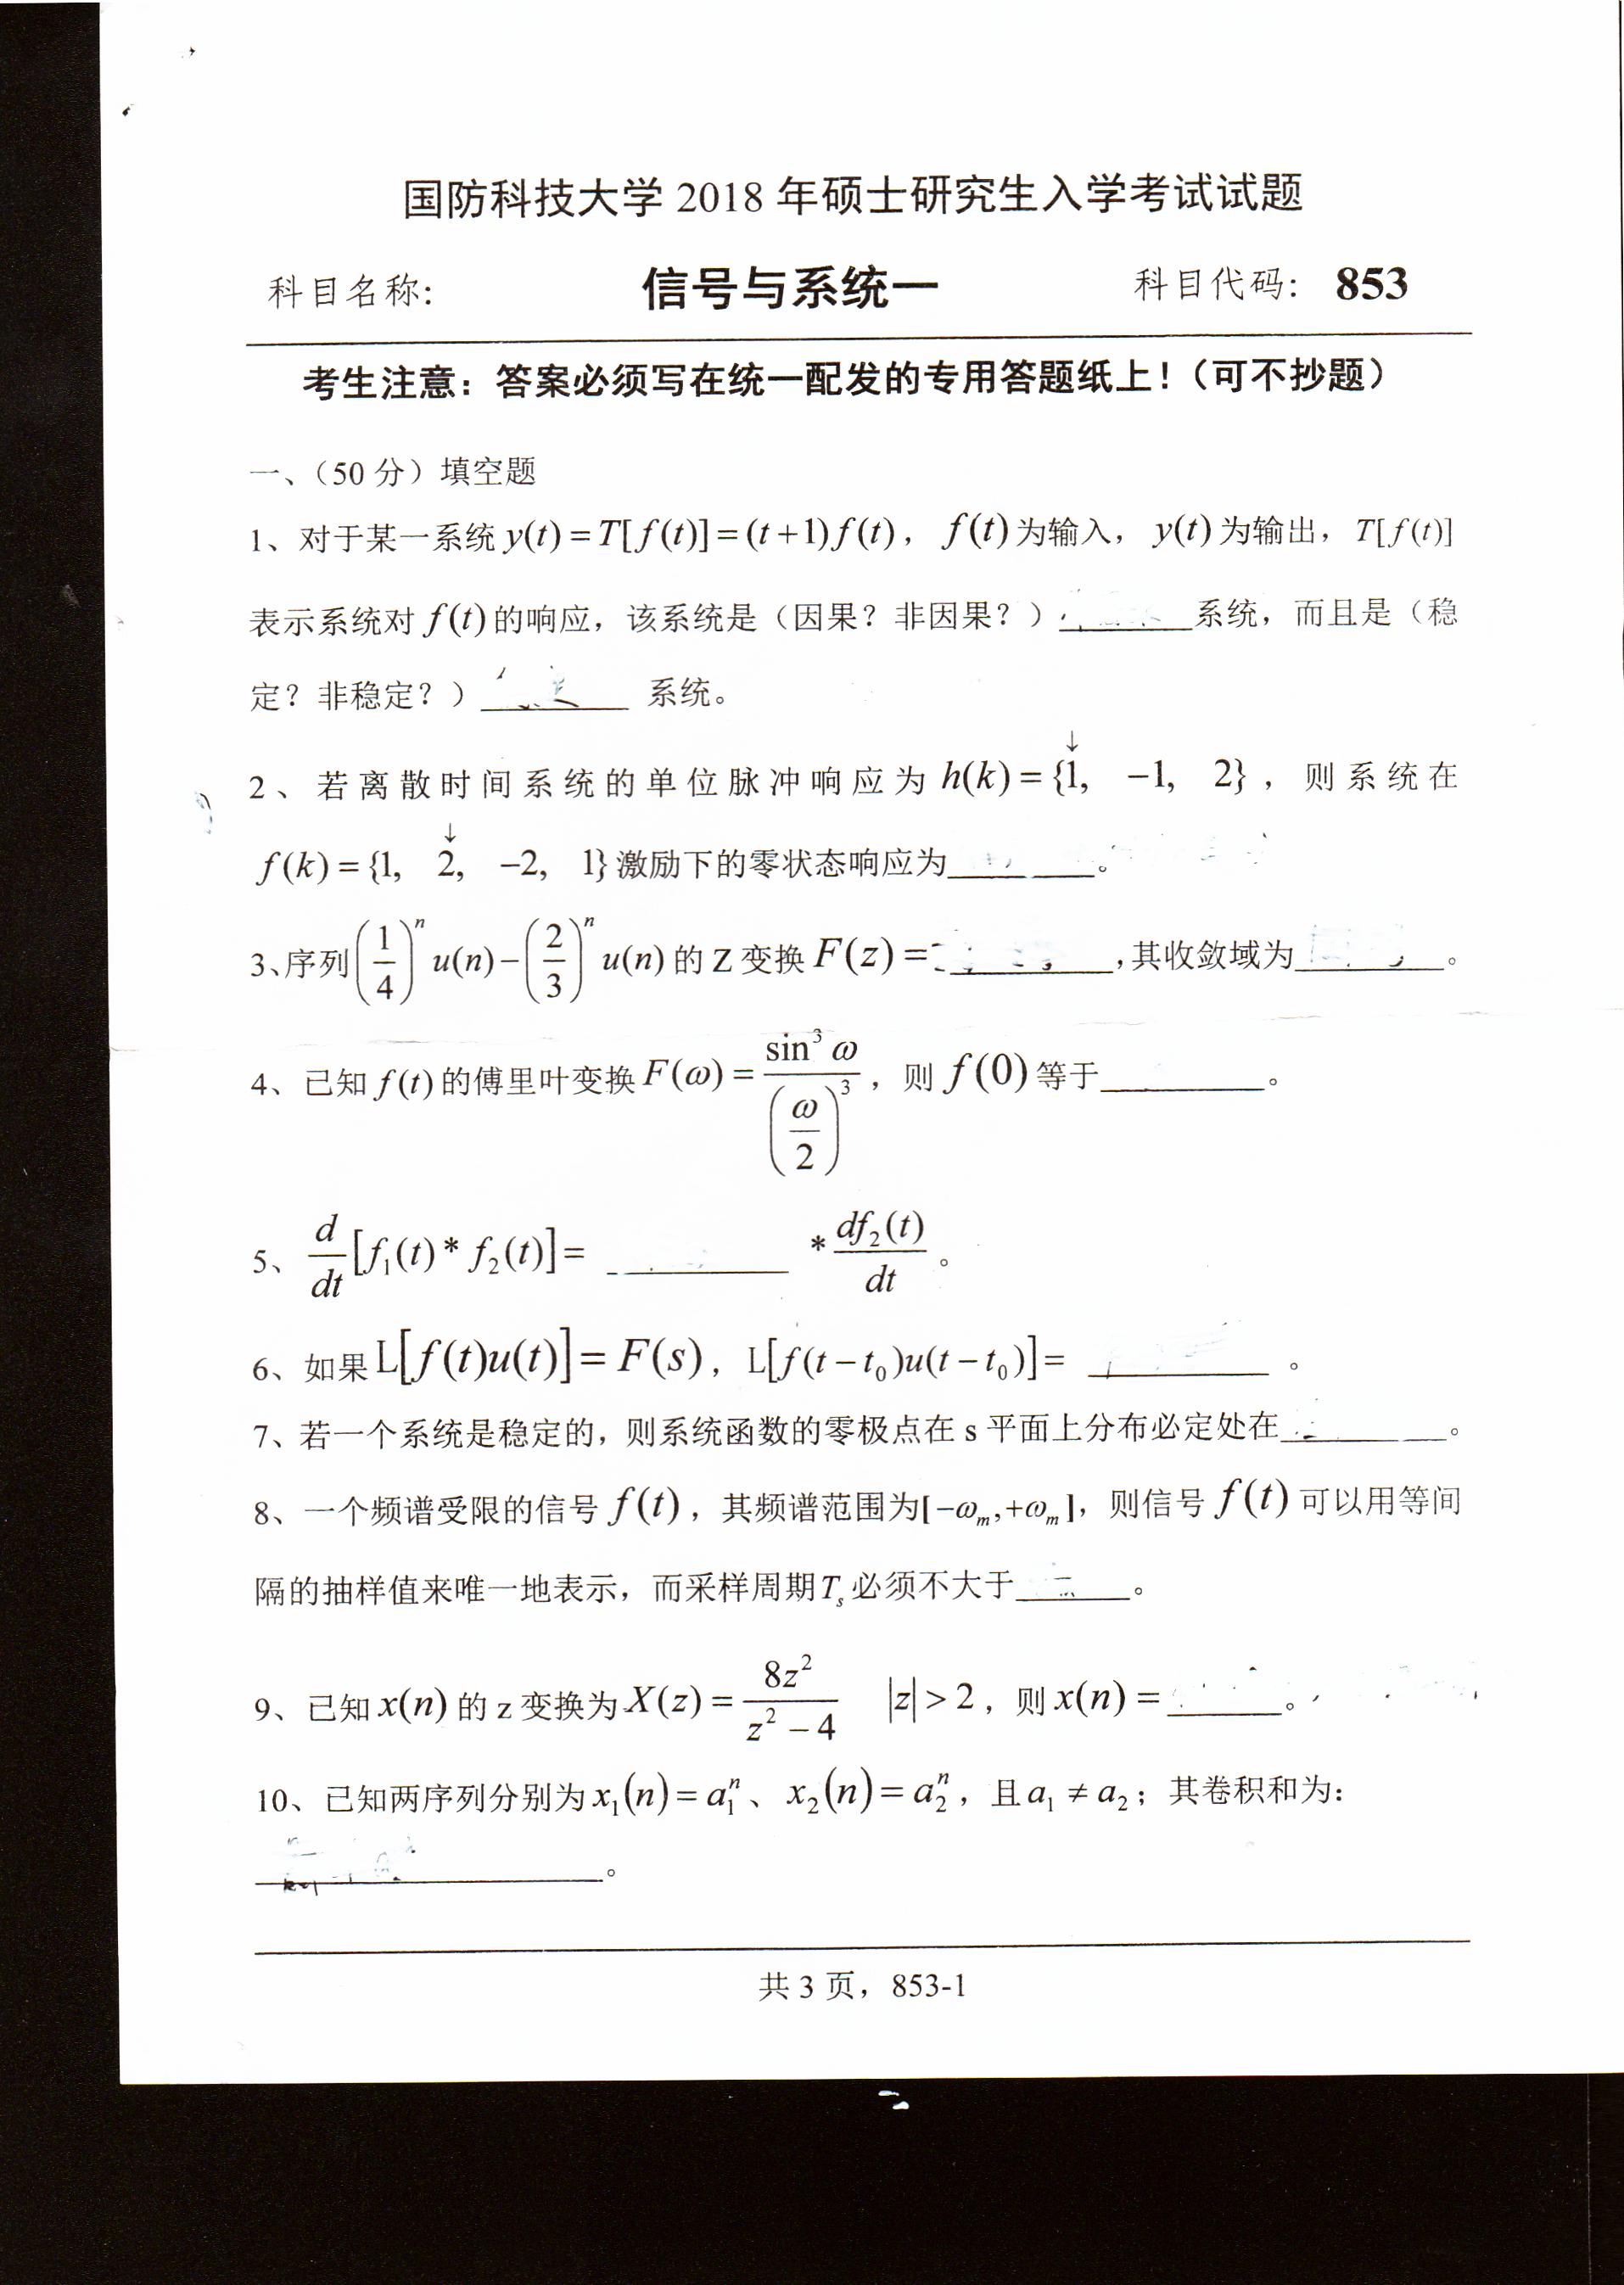 国防科技大学 2018 年硕士研究生入学考试试题
科目名称: 信号与系统一 科目代码: 853
考生注意：答案必须写在统一配发的专用答题纸上！（可不抄题）
一、（50 分）填空题
1、对于某一系统 y(t) = T[f(t)] = (t+1)f(t)， f(t) 为输入， y(t) 为输出， T[f(t)]
表示系统对 f(t) 的响应，该系统是（因果？非因果？）________系统，而且是（稳
定？非稳定？）________ 系统。
2、若离散时间系统的单位脉冲响应为 h(k) = {1↓, −1, 2}，则系统在
f(k) = {1, 2↓, −2, 1} 激励下的零状态响应为________。
3、序列 (1/4)^n u(n) − (2/3)^n u(n) 的 Z 变换 F(z) = ________，其收敛域为________。
4、已知 f(t) 的傅里叶变换 F(ω) = sin³ω / (ω/2)³，则 f(0) 等于________。
5、 d/dt [f₁(t) * f₂(t)] = ________ * df₂(t)/dt。
6、如果 L[f(t)u(t)] = F(s)， L[f(t − t₀)u(t − t₀)] = ________。
7、若一个系统是稳定的，则系统函数的零极点在 s 平面上分布必定处在________。
8、一个频谱受限的信号 f(t)，其频谱范围为[−ωₘ,+ωₘ]，则信号 f(t) 可以用等间
隔的抽样值来唯一地表示，而采样周期 Tₛ 必须不大于________。
9、已知 x(n) 的 z 变换为 X(z) = 8z² / (z² − 4) |z| > 2，则 x(n) = ________。
10、已知两序列分别为 x₁(n) = a₁ⁿ、 x₂(n) = a₂ⁿ，且 a₁ ≠ a₂；其卷积和为：
________。
共 3 页，853-1